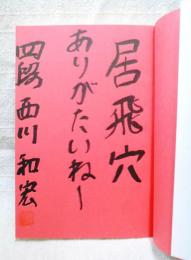 居飛穴
ありがたいねー
四段 西川和宏